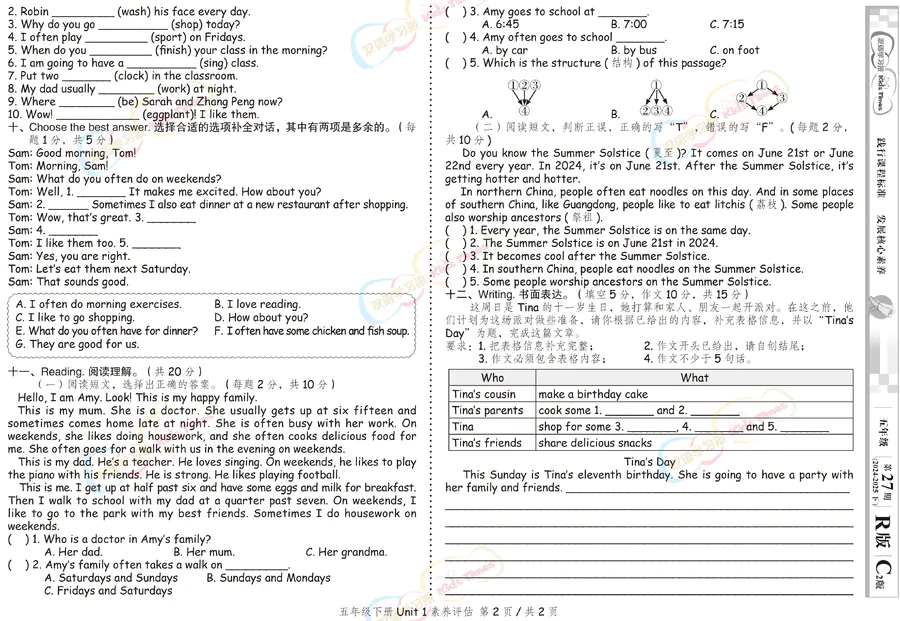 2. Robin __________ (wash) his face every day.
3. Why do you go ___________ (shop) today?
4. I often play __________ (sport) on Fridays.
5. When do you __________ (finish) your class in the morning?
6. I am going to have a ___________ (sing) class.
7. Put two ________ (clock) in the classroom.
8. My dad usually _________ (work) at night.
9. Where _________ (be) Sarah and Zhang Peng now?
10. Wow! _____________ (eggplant)! I like them.
十、Choose the best answer. 选择合适的选项补全对话,其中有两项是多余的。(每
题 1 分,共 5 分)
Sam: Good morning, Tom!
Tom: Morning, Sam!
Sam: What do you often do on weekends?
Tom: Well, 1. ________ It makes me excited. How about you?
Sam: 2. _______ Sometimes I also eat dinner at a new restaurant after shopping.
Tom: Wow, that's great. 3. ________
Sam: 4. ________
Tom: I like them too. 5. ________
Sam: Yes, you are right.
Tom: Let's eat them next Saturday.
Sam: That sounds good.
A. I often do morning exercises. B. I love reading.
C. I like to go shopping. D. How about you?
E. What do you often have for dinner? F. I often have some chicken and fish soup.
G. They are good for us.
十一、Reading. 阅读理解。(共 20 分)
(一)阅读短文,选择出正确的答案。(每题 2 分,共 10 分)
Hello, I am Amy. Look! This is my happy family.
This is my mum. She is a doctor. She usually gets up at six fifteen and
sometimes comes home late at night. She is often busy with her work. On
weekends, she likes doing housework, and she often cooks delicious food for
me. She often goes for a walk with us in the evening on weekends.
This is my dad. He's a teacher. He loves singing. On weekends, he likes to play
the piano with his friends. He is strong. He likes playing football.
This is me. I get up at half past six and have some eggs and milk for breakfast.
Then I walk to school with my dad at a quarter past seven. On weekends, I
like to go to the park with my best friends. Sometimes I do housework on
weekends.
( ) 1. Who is a doctor in Amy's family?
A. Her dad. B. Her mum. C. Her grandma.
( ) 2. Amy's family often takes a walk on __________.
A. Saturdays and Sundays B. Sundays and Mondays
C. Fridays and Saturdays
( ) 3. Amy goes to school at ________.
A. 6:45 B. 7:00 C. 7:15
( ) 4. Amy often goes to school ________.
A. by car B. by bus C. on foot
( ) 5. Which is the structure (结构) of this passage?
①②③ ① ①
② ③
A. ④ B. ②③④ C. ④
(二)阅读短文,判断正误,正确的写“T”,错误的写“F”。(每题 2 分,
共 10 分)
Do you know the Summer Solstice (夏至)? It comes on June 21st or June
22nd every year. In 2024, it's on June 21st. After the Summer Solstice, it's
getting hotter and hotter.
In northern China, people often eat noodles on this day. And in some places
of southern China, like Guangdong, people like to eat litchis (荔枝). Some people
also worship ancestors (祭祖).
( ) 1. Every year, the Summer Solstice is on the same day.
( ) 2. The Summer Solstice is on June 21st in 2024.
( ) 3. It becomes cool after the Summer Solstice.
( ) 4. In southern China, people eat noodles on the Summer Solstice.
( ) 5. Some people worship ancestors on the Summer Solstice.
十二、Writing. 书面表达。(填空 5 分,作文 10 分,共 15 分)
这周日是 Tina 的十一岁生日,她打算和家人、朋友一起开派对。在这之前,他
们计划为这场派对做些准备,请你根据已给出的内容,补充表格信息,并以“Tina's
Day”为题,完成这篇文章。
要求:1. 把表格信息补充完整; 2. 作文开头已给出,请自创结尾;
3. 作文必须包含表格内容; 4. 作文不少于 5 句话。
Who What
Tina's cousin make a birthday cake
Tina's parents cook some 1. ________ and 2. ________
Tina shop for some 3. ________, 4. ________ and 5. ________
Tina's friends share delicious snacks
Tina's Day
This Sunday is Tina's eleventh birthday. She is going to have a party with
her family and friends. ________
五年级下册 Unit 1 素养评估 第 2 页 / 共 2 页
双语学习报 Kids Times
践行课程标准 发展核心素养
五年级
第27期
(2024-2025 下)
R版
C2版